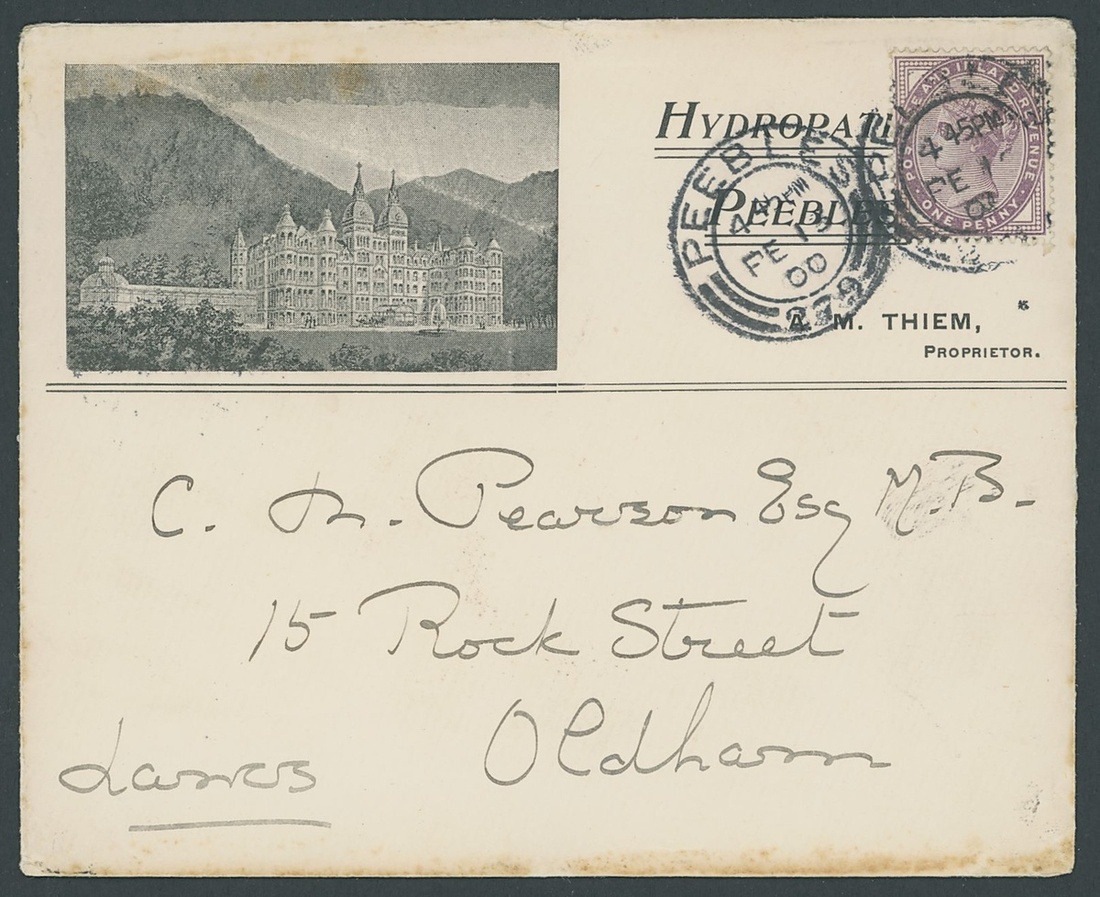 HYDROPATHI
PEEBLES
A. M. THIEM,
PROPRIETOR.
PEEBLES
4 45 PM
FE 19
00
279
POSTAGE AND INLAND REVENUE
ONE PENNY
4 45PM
FE 1
00
C. M. Pearson Esq M.B.
15 Rock Street
Oldham
Lancs